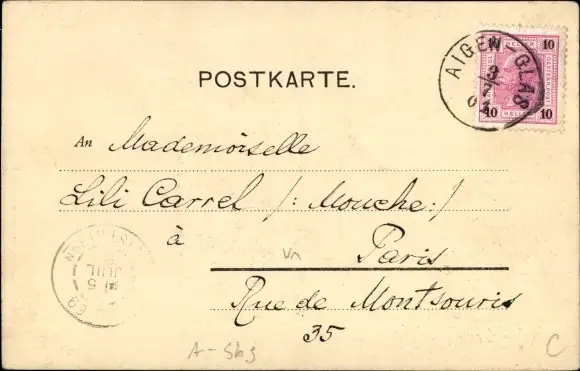 10 HELLER 10
AIGEN-GLAS
3
7
POSTKARTE.
10 HELLER 10
An Mademoiselle
Lili Carrel /: Mouche :/
à Paris
Rue de Montsouris
35
5
JUIL
A - Sbg
C